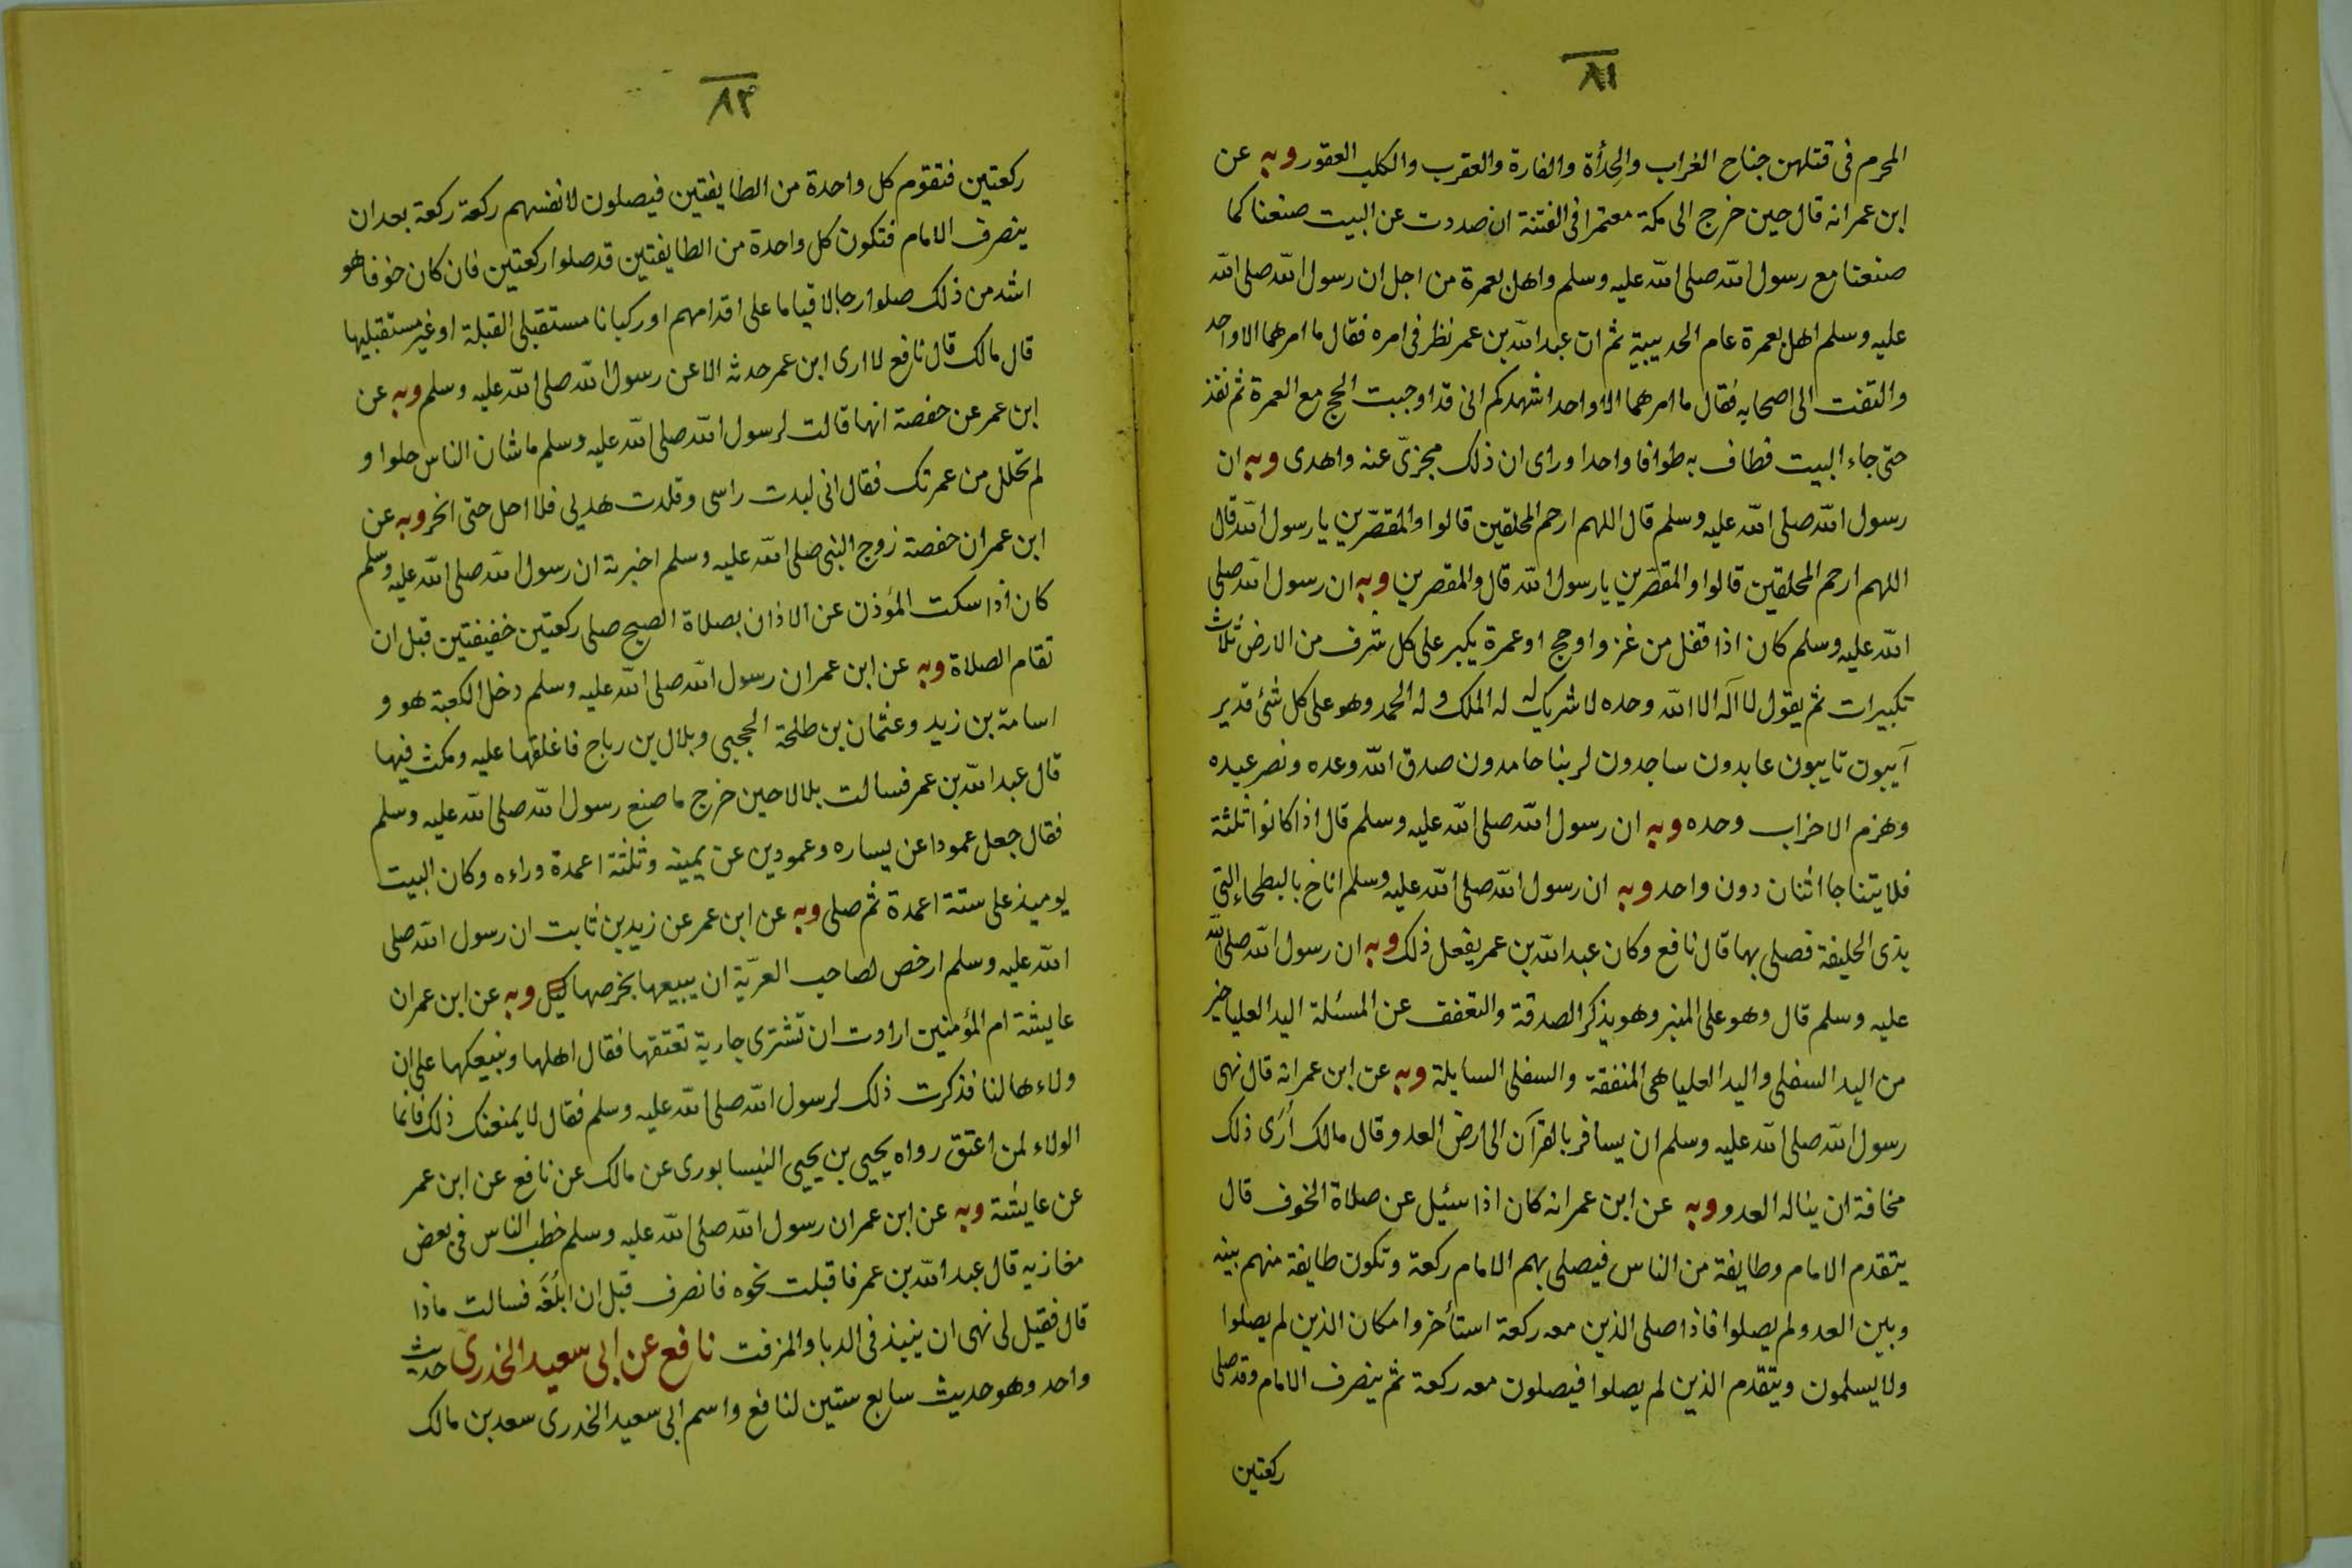 ٨١
المحرم فى قتلهن جناح الغراب والحدأة والفارة والعقرب والكلب العقور وبه عن
ابن عمر انه قال حين خرج الى مكة معتمرا فى الفتنة ان صددت عن البيت صنعنا كما
صنعنا مع رسول الله صلى الله عليه وسلم واهل بعمرة من اجل ان رسول الله صلى الله
عليه وسلم اهل بعمرة عام الحديبية ثم ان عبد الله بن عمر نظر فى امره فقال ما امرهما الا واحد
والتفت الى اصحابه فقال ما امرهما الا واحد اشهدكم انى قد اوجبت الحج مع العمرة ثم نفذ
حتى جاء البيت فطاف به طوافا واحدا وراى ان ذلك مجزئ عنه واهدى وبه ان
رسول الله صلى الله عليه وسلم قال اللهم ارحم المحلقين قالوا والمقصّرين يا رسول الله قال
اللهم ارحم المحلقين قالوا والمقصّرين يا رسول الله قال والمقصرين وبه ان رسول الله صلى
الله عليه وسلم كان اذا قفل من غزو او حج او عمرة يكبر على كل شرف من الارض ثلاث
تكبيرات ثم يقول لا اله الا الله وحده لا شريك له له الملك وله الحمد وهو على كل شئ قدير
آيبون تايبون عابدون ساجدون لربنا حامدون صدق الله وعده ونصر عبده
وهزم الاحزاب وحده وبه ان رسول الله صلى الله عليه وسلم قال اذا كانوا ثلثة
فلا يتناجا اثنان دون واحد وبه ان رسول الله صلى الله عليه وسلم اناخ بالبطحاء التى
بذى الحليفة فصلى بها قال نافع وكان عبد الله بن عمر يفعل ذلك وبه ان رسول الله صلى الله
عليه وسلم قال وهو على المنبر وهو يذكر الصدقة والتعفف عن المسئلة اليد العليا خير
من اليد السفلى واليد العليا هى المنفقة والسفلى السايلة وبه عن ابن عمر انه قال نهى
رسول الله صلى الله عليه وسلم ان يسافر بالقرآن الى ارض العدو وقال مالك أرى ذلك
مخافة ان يناله العدو وبه عن ابن عمر انه كان اذا سئيل عن صلاة الخوف قال
يتقدم الامام وطايفة من الناس فيصلى بهم الامام ركعة وتكون طايفة منهم بينه
وبين العدو لم يصلوا فاذا صلى الذين معه ركعة استأخروا مكان الذين لم يصلوا
ولا يسلمون ويتقدم الذين لم يصلوا فيصلون معه ركعة ثم ينصرف الامام وقد صلى
ركعتين
٨٢
ركعتين فتقوم كل واحدة من الطايفتين فيصلون لانفسهم ركعة ركعة بعد ان
ينصرف الامام فتكون كل واحدة من الطايفتين قد صلوا ركعتين فان كان خوفا هو
اشد من ذلك صلوا رجالا قياما على اقدامهم او ركبانا مستقبلى القبلة او غير مستقبليها
قال مالك قال نافع لا ارى ابن عمر حدثه الا عن رسول الله صلى الله عليه وسلم وبه عن
ابن عمر عن حفصة انها قالت لرسول الله صلى الله عليه وسلم ما شان الناس حلوا و
لم تحلل من عمرتك فقال انى لبدت راسى وقلدت هديى فلا احل حتى انحر وبه عن
ابن عمر ان حفصة زوج النبى صلى الله عليه وسلم اخبرته ان رسول الله صلى الله عليه وسلم
كان اذا سكت المؤذن عن الاذان بصلاة الصبح صلى ركعتين خفيفتين قبل ان
تقام الصلاة وبه عن ابن عمر ان رسول الله صلى الله عليه وسلم دخل الكعبة هو و
اسامة بن زيد وعثمان بن طلحة الحجبى وبلال بن رباح فاغلقها عليه ومكث فيها
قال عبد الله بن عمر فسالت بلالا حين خرج ما صنع رسول الله صلى الله عليه وسلم
فقال جعل عمودا عن يساره وعمودين عن يمينه وثلثة اعمدة وراءه وكان البيت
يوميذ على ستة اعمدة ثم صلى وبه عن ابن عمر عن زيد بن ثابت ان رسول الله صلى
الله عليه وسلم ارخص لصاحب العريّة ان يبيعها بخرصها كيل وبه عن ابن عمر ان
عايشة ام المؤمنين ارادت ان تشترى جارية تعتقها فقال اهلها وبنيعكها على ان
ولاءها لنا فذكرت ذلك لرسول الله صلى الله عليه وسلم فقال لا يمنعنك ذلك فانما
الولاء لمن اعتق رواه يحيى بن يحيى النيسابورى عن مالك عن نافع عن ابن عمر
عن عايشة وبه عن ابن عمر ان رسول الله صلى الله عليه وسلم خطب الناس فى بعض
مغازيه قال عبد الله بن عمر فاقبلت نحوه فانصرف قبل ان ابلُغَه فسالت ماذا
قال فقيل لى نهى ان ينبذ فى الدبا والمزفت نافع عن ابى سعيد الخدرى حديث
واحد وهو حديث سابع ستين لنافع واسم ابى سعيد الخدرى سعد بن مالك